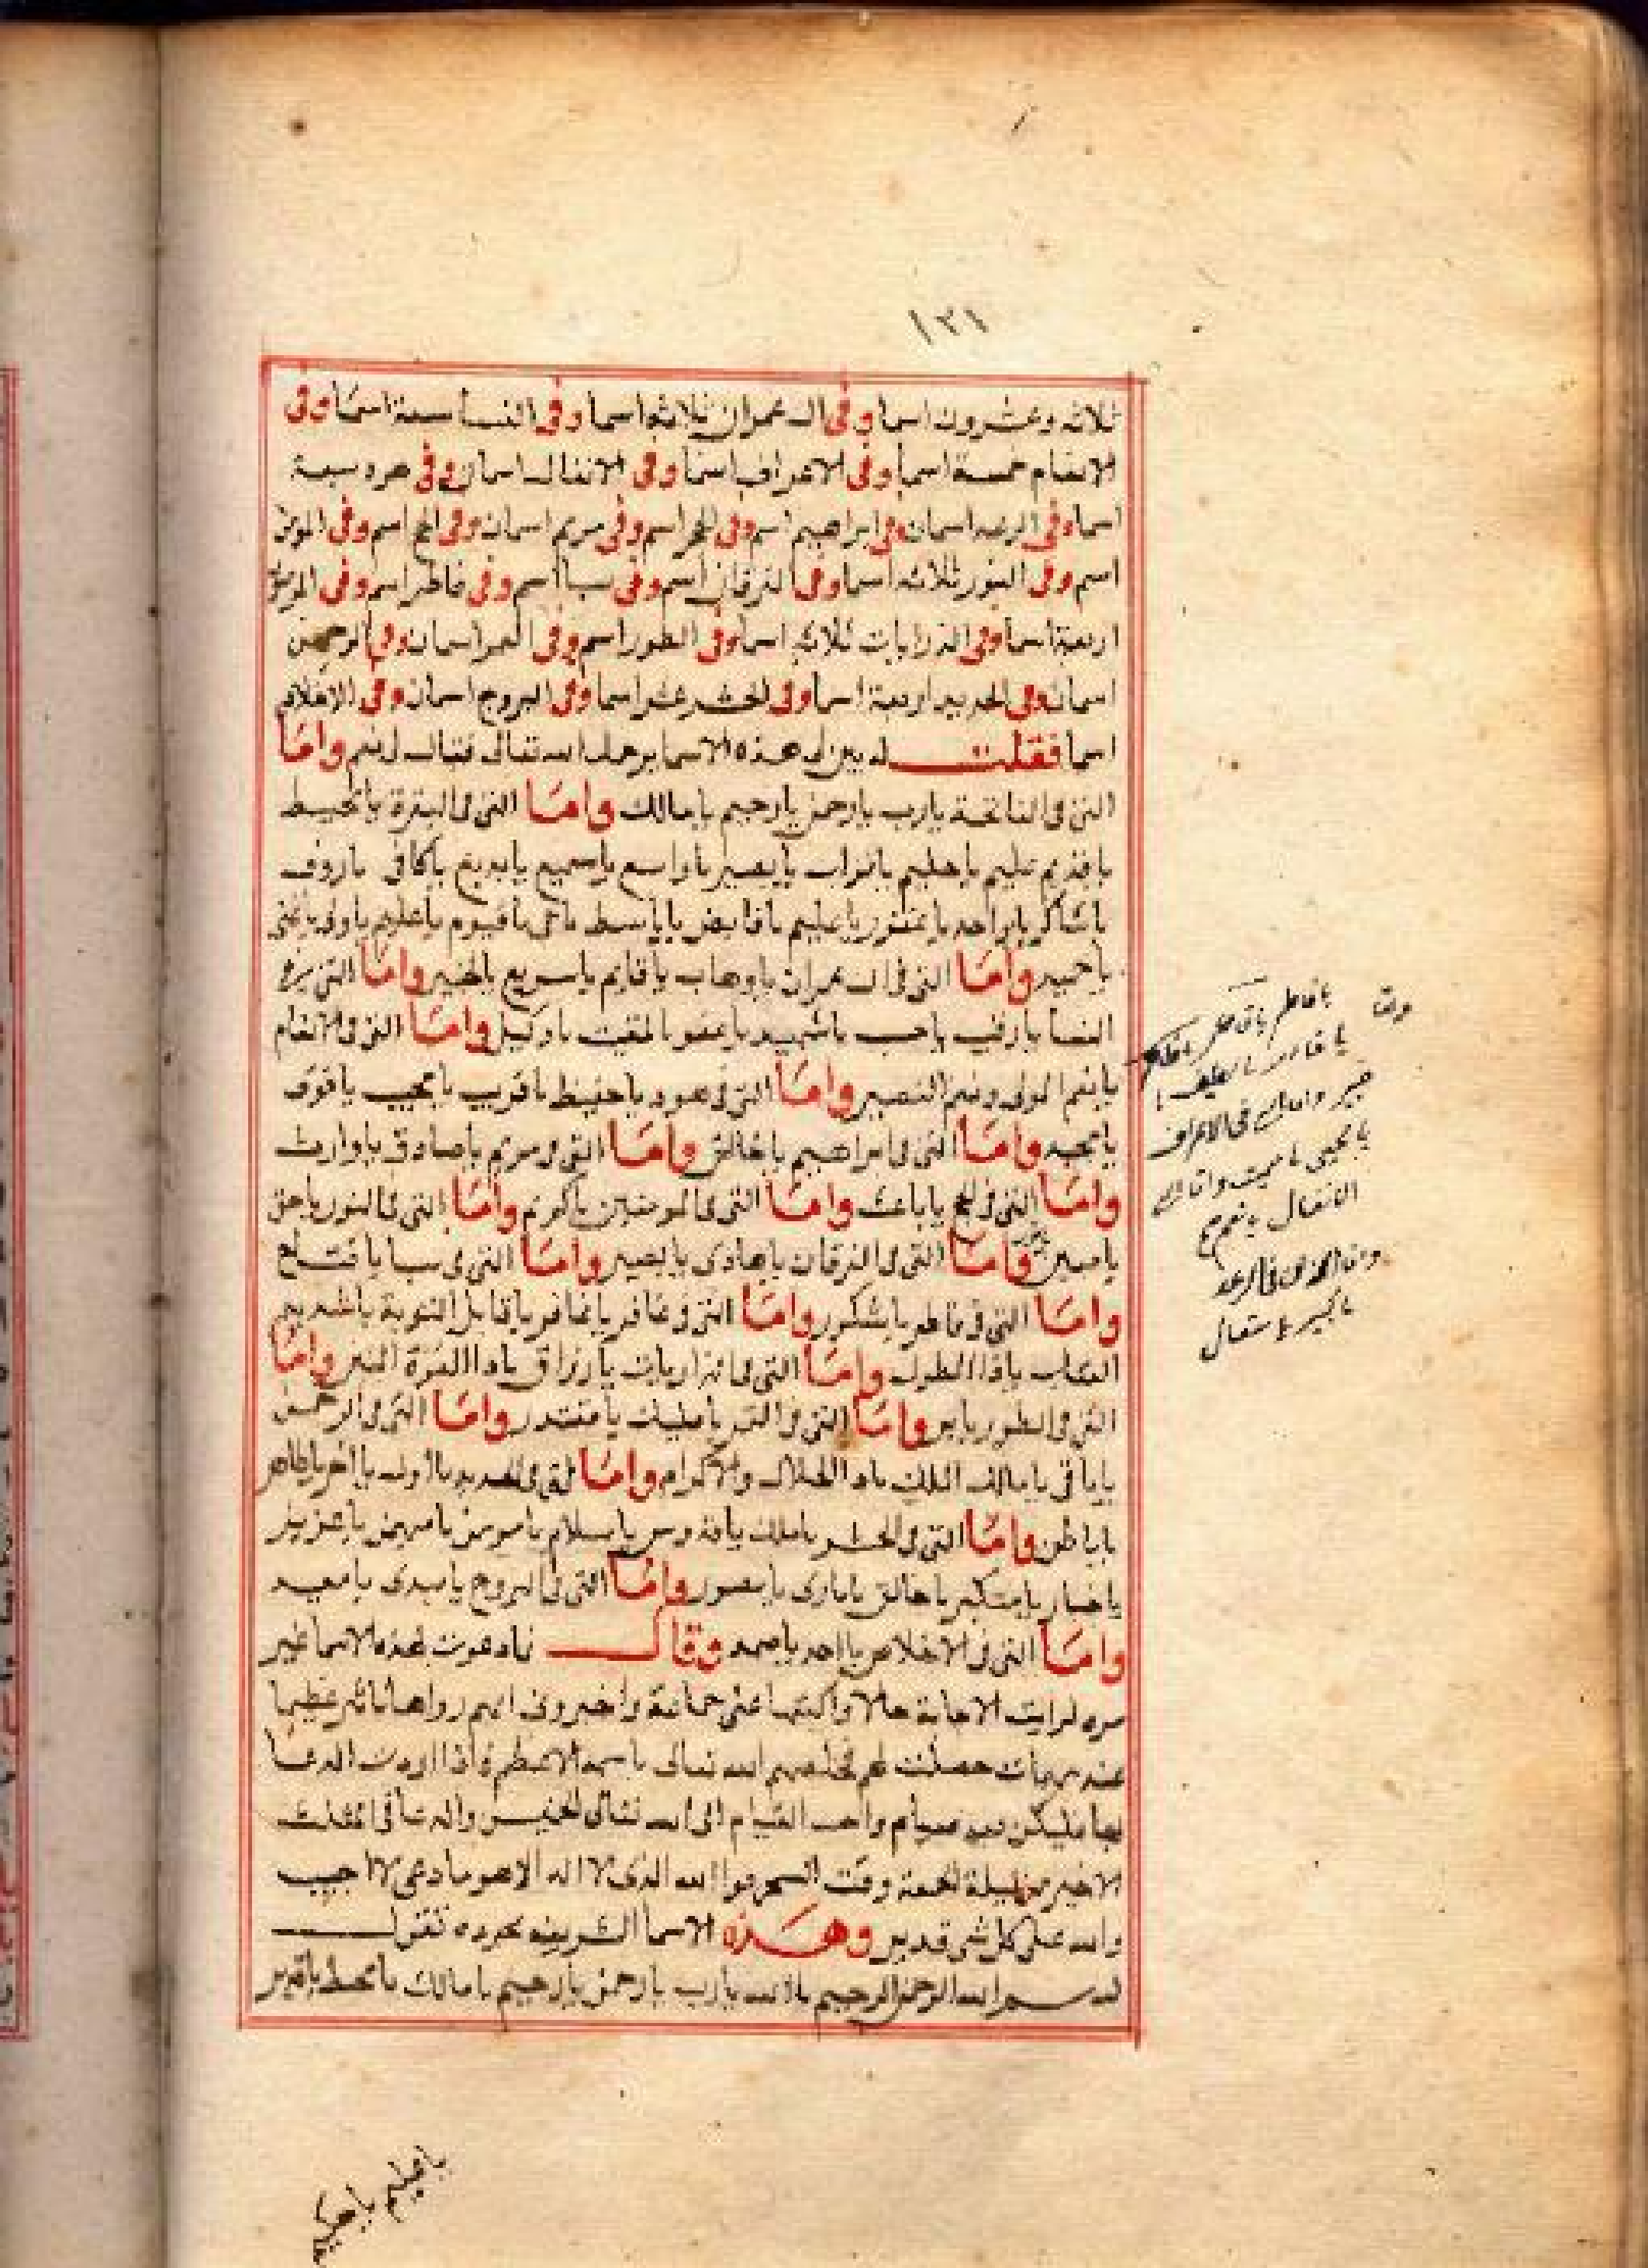 ١٢١
ثلاثه وعشرون اسما وفى ال عمران ثلاثه اسما وفى النسا سبعة اسما وفى
الانعام خمسة اسما وفى الاعراف اسما وفى الانفال اسمان وفى هود سبعة
اسماء وفى الرعد اسمان وفى ابراهيم اسم وفى الحجر اسم وفى مريم اسمان وفى الحج اسم وفى المومن
اسم وفى النور ثلاثه اسما وفى الفرقان اسم وفى سبا اسم وفى فاطر اسم وفى المومن
اربعة اسما وفى الذرايات ثلاثه اسما وفى الطور اسم وفى القمر اسمان وفى الرحمن
اسمان وفى الحديد اربعة اسما وفى الحشر عشر اسما وفى البروج اسمان وفى الاخلاص
اسما فقلت له بين لى هذه الاسما يرحمك الله تعالى فقال لى نعم واما
التى فى الفاتحة يا رب يا رحمن يا رحيم يا مالك واما التى فى البقرة يا محيط
يا قدير يا عليم يا حكيم يا تواب يا بصير يا واسع يا سميع يا بديع يا كافى يا روف
يا شاكر يا واحد يا غفور يا حليم يا قابض يا باسط يا حى يا قيوم يا على يا عظيم يا ولى يا غنى
يا حميد واما التى فى ال عمران يا وهاب يا قايم يا سريع يا خبير واما التى فى
النسا يا رقيب يا حسيب يا شهيد يا عفو يا مقيت يا وكيل واما التى فى الانعام
يا نعم المولى ونعم النصير واما التى فى هود يا حفيظ يا قريب يا مجيب يا قوى
يا مجيد واما التى فى ابراهيم يا خالق واما التى فى مريم يا صادق يا وارث
واما التى فى الحج يا باعث واما التى فى المومنين يا كريم واما التى فى النور يا حق
يا مبين يا نور واما التى فى الفرقان يا هادى يا بصير واما التى فى سبا يا فتاح
واما التى فى فاطر يا شكور واما التى فى غافر يا غافر يا قابل التوبة يا شديد
العقاب يا ذا الطول واما التى فى الذاريات يا رزاق يا ذا القوة المتين واما
التى فى الطور يا بر واما التى فى القمر يا مليك يا مقتدر واما التى فى الرحمن
يا باقى يا مالك الملك يا ذا الجلال والاكرام واما التى فى الحديد يا اول يا اخر يا ظاهر
يا باطن واما التى فى الحشر يا ملك يا قدوس يا سلام يا مومن يا مهيمن يا عزيز
يا جبار يا متكبر يا خالق يا بارى يا مصور واما التى فى البروج يا مبدى يا معيد
واما التى فى الاخلاص يا احد يا صمد وقال فما دعوت بهذه الاسما غير
مره لرايت الاجابة حالا واكتبها عنى جماعة واخبرونى انهم راوا لها تاثير عظيما
عند مهمات حصلت لهم فخلصهم الله تعالى باسمه الاعظم واذا اردت الدعا
بها فليكن بعد صيام واحب القيام الى الله تعالى الخميس والدعا فى الثلث
الاخير من ليلة الجمعة وقت السحر فوا الله الذى لا اله الا هو ما دعى الا اجيب
والله على كل شى قدير وهذه الاسما الشريفه مجرده تقول
بسم الله الرحمن الرحيم يا الله يا رب يا رحمن يا رحيم يا مالك يا محيط يا قدير
يا عليم يا حكيم
واما
يا فاطر يا قاهر
يا قادر يا لطيف يا
خبير واما التى فى الاعراف
يا محيى يا مميت واما التى
الانفال يا نعم
واما التى فى الرعد
يا كبير يا متعال